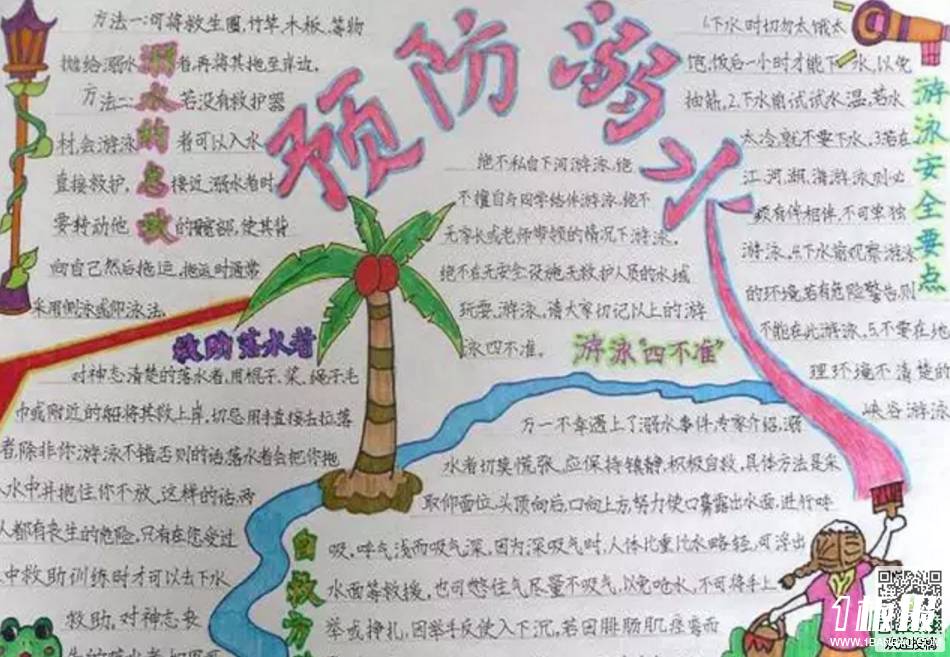 预防溺水
溺水的急救
方法一:可将救生圈,竹竿,木板,等物
抛给溺水者,再将其拖至岸边。
方法二:若没有救护器
材,会游泳者可以入水
直接救护,接近溺水者时
要转动他的髋部,使其背
向自己然后拖运,拖运时通常
采用侧泳或仰泳法。
绝不私自下河游泳,绝
不擅自与同学结伴游泳,绝不
无家长或老师带领的情况下游泳。
绝不在无安全设施,无救护人员的水域
玩耍,游泳,请大家切记以上的游
泳四不准。
游泳"四不准"
游泳安全要点
1.下水时切勿太饿太
饱,饭后一小时才能下水,以免
抽筋,2.下水前试试水温,若水
太冷,就不要下水,3.若在
江,河,湖,海游泳则必
须有伴相伴,不可单独
游泳,4.下水前观察游泳
的环境,若有危险警告,则
不能在此游泳,5.不要在地
理环境不清楚的
峡谷游泳
救助落水者
对神志清楚的落水者,用棍子,桨,绳子毛
巾或附近的船将其救上岸,切忌用手直接去拉落
者,除非你游泳不错否则的话,落水者会把你拖
入水中,并拖住你不放,这样的话两
人都有丧生的危险,只有在您受过
中救助训练时才可以去下水
救助,对神志丧
自救方
万一不幸遇上了溺水事件,专家介绍,溺
水者切莫慌张,应保持镇静,积极自救,具体方法是采
取仰面位,头顶向后,口向上方,努力使口鼻露出水面,进行呼
吸,呼气浅而吸气深,因为深吸气时,人体比重比水略轻,可浮出
水面等救援,也可憋住气尽量不吸气,以免呛水,不可将手上
举或挣扎,因举手反使入下沉,若因腓肠肌痉挛而
WWW.1BANBAO.COM
欢迎投稿